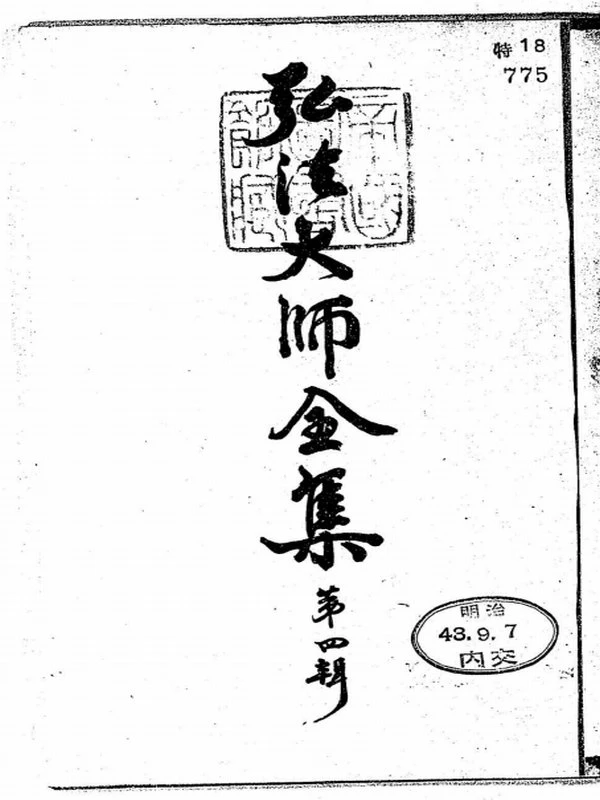 特18
775
弘法大師全集
第四輯
明治
43.9.7
内交